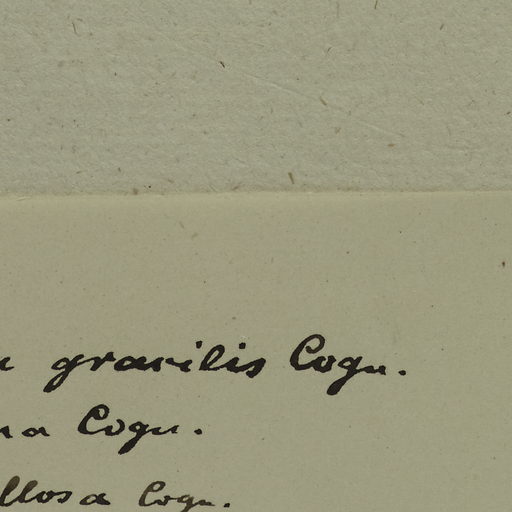 gracilis Cogn.
na Cogn.
llosa Cogn.